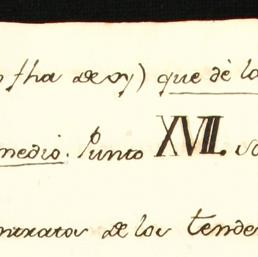 fha de oy) que dè la
medio. Punto XVII. so
contratos de los tende